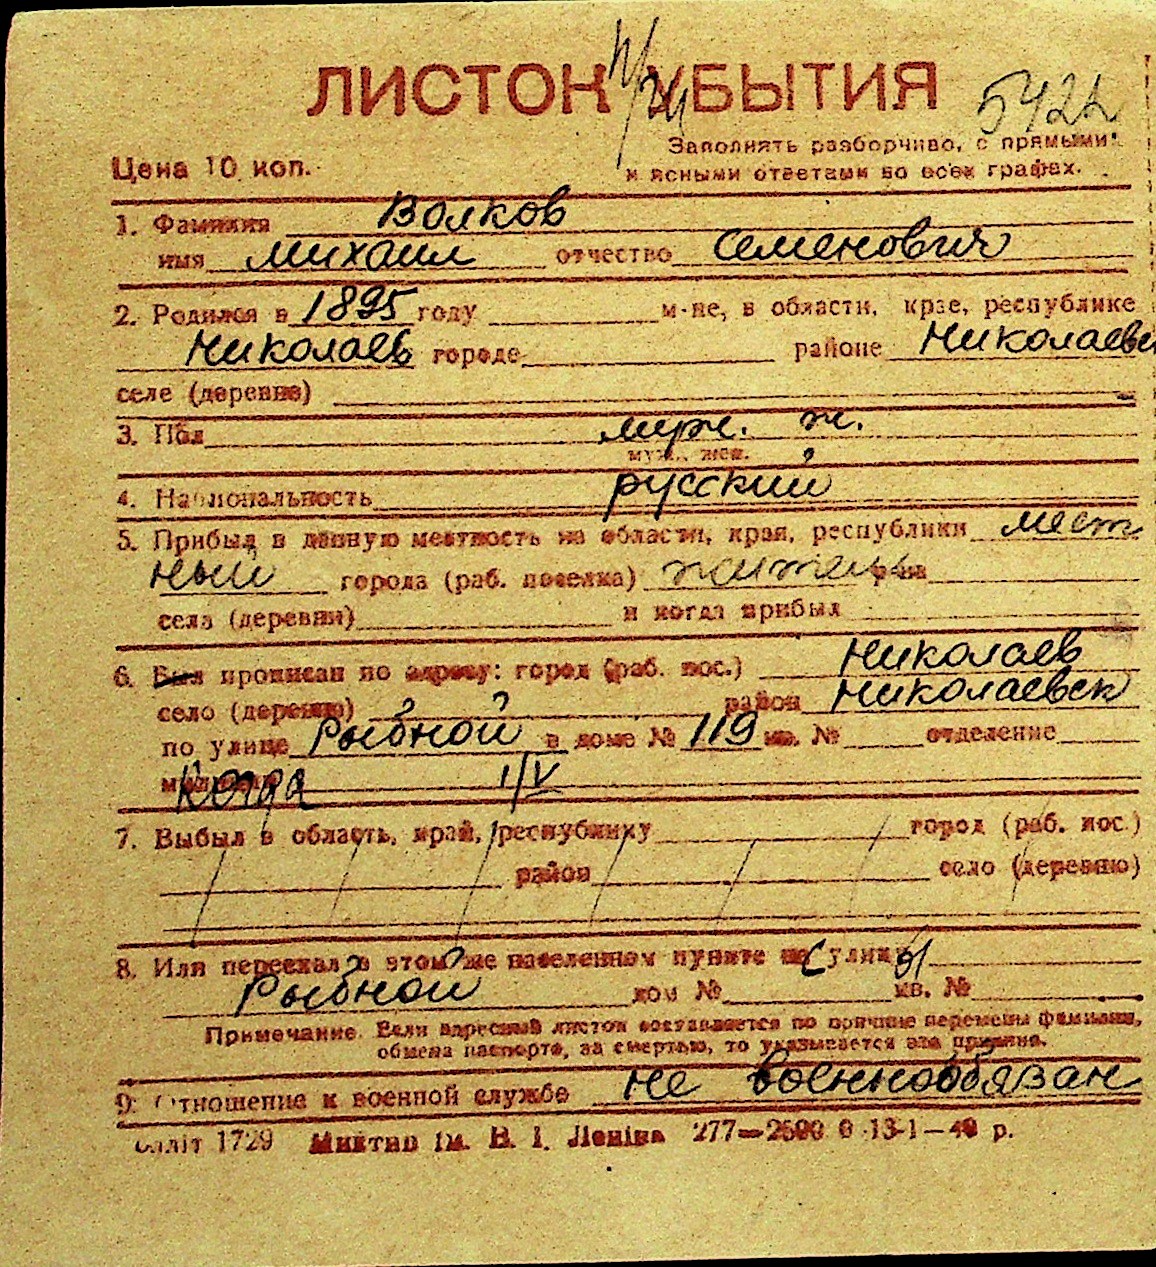 ЛИСТОК УБЫТИЯ
5422
Цена 10 коп.
Заполнять разборчиво, с прямыми
и ясными ответами во всех графах.
1. Фамилия Волков
имя Михаил отчество Семенович
2. Родился в 1895 году м-це, в области, крае, республике
Николаев городе районе Николаевск
селе (деревне)
3. Пол муж. ж.
муж., жен.
4. Национальность русский
5. Прибыл в данную местность из области, края, республики мест
ный города (раб. поселка) житель р-на
села (деревни) и когда прибыл
6. Был прописан по адресу: город (раб. пос.) Николаев
село (деревню) район Николаевск
по улице Рыбной в доме № 119 кв. № отделение
Когда 1/V
7. Выбыл в область, край, республику город (раб. пос.)
район село (деревню)
8. Или переехал в этом же населенном пункте на С улицы
Рыбной дом № кв. №
Примечание. Если адресный листок составляется по причине перемены фамилии,
обмена паспорта, за смертью, то указывается эта причина.
9. Отношение к военной службе не военнообязан
1729 Миктип Ім. В. І. Леніна 277—2500 0 13-1—40 р.